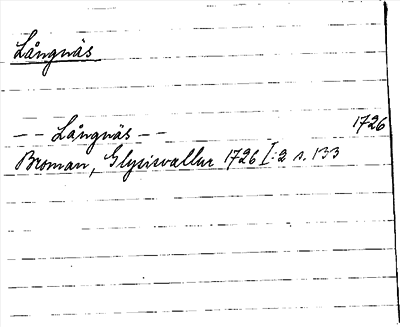 Långnäs
1726
-- Långnäs --
Broman, Glysisvallur 1726 I:2 s. 133